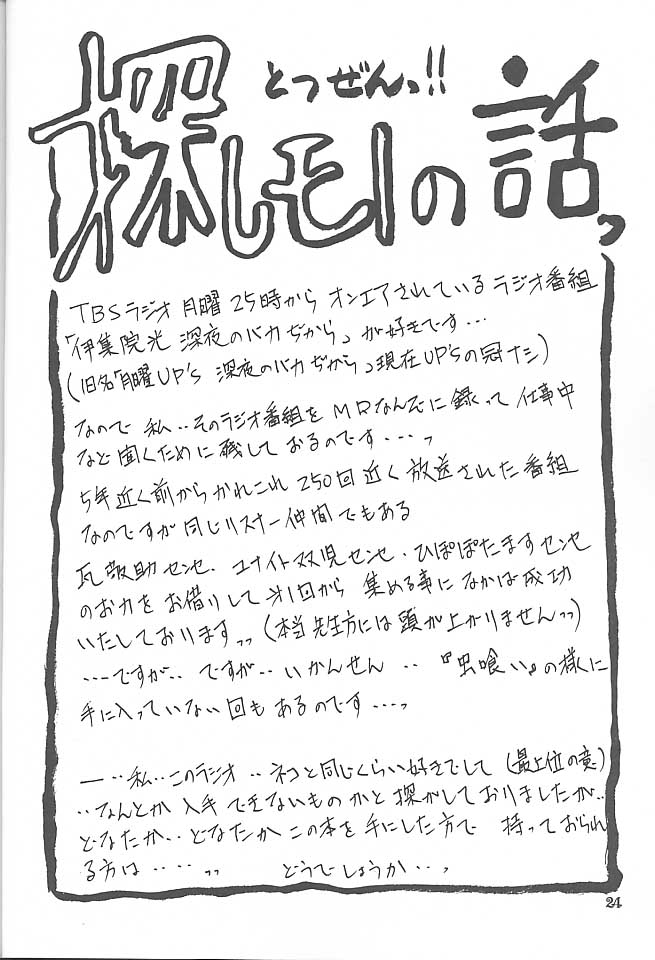 とつぜんっ!!
探しモノの話っ
TBSラジオ 月曜 25時から オンエアされている ラジオ番組
「伊集院光 深夜のバカぢから」が好きです…
(旧名「月曜UP'S 深夜のバカぢから」現在UP'Sの冠ナシ)
なので 私‥そのラジオ番組を MDなんぞに録って 仕事中
など聞くために 残しておるのです‥‥っ
5年近く前からかれこれ 250回近く 放送された番組
なのですが 同じリスナー仲間でもある
瓦敬助センセ、ユナイト双児センセ・ひぽぽたますセンセ
のお力をお借りして 第1回から 集める事に なかば成功
いたしておりますっっ (本当先生方には頭が上がりませんっっ)
‥‥ですが‥ ですが‥ いかんせん ‥ 『虫喰い』の様に
手に入っていない回もあるのです‥‥っ
ー ‥私‥このラジオ ‥ネコと同じくらい好きでして (最上位の意)
‥なんとか 入手できないものかと探がしておりましたが‥
どなたか‥ どなたか この本を手にした方で 持っておられ
る方は ‥‥っっ どうでしょうか‥っ
24